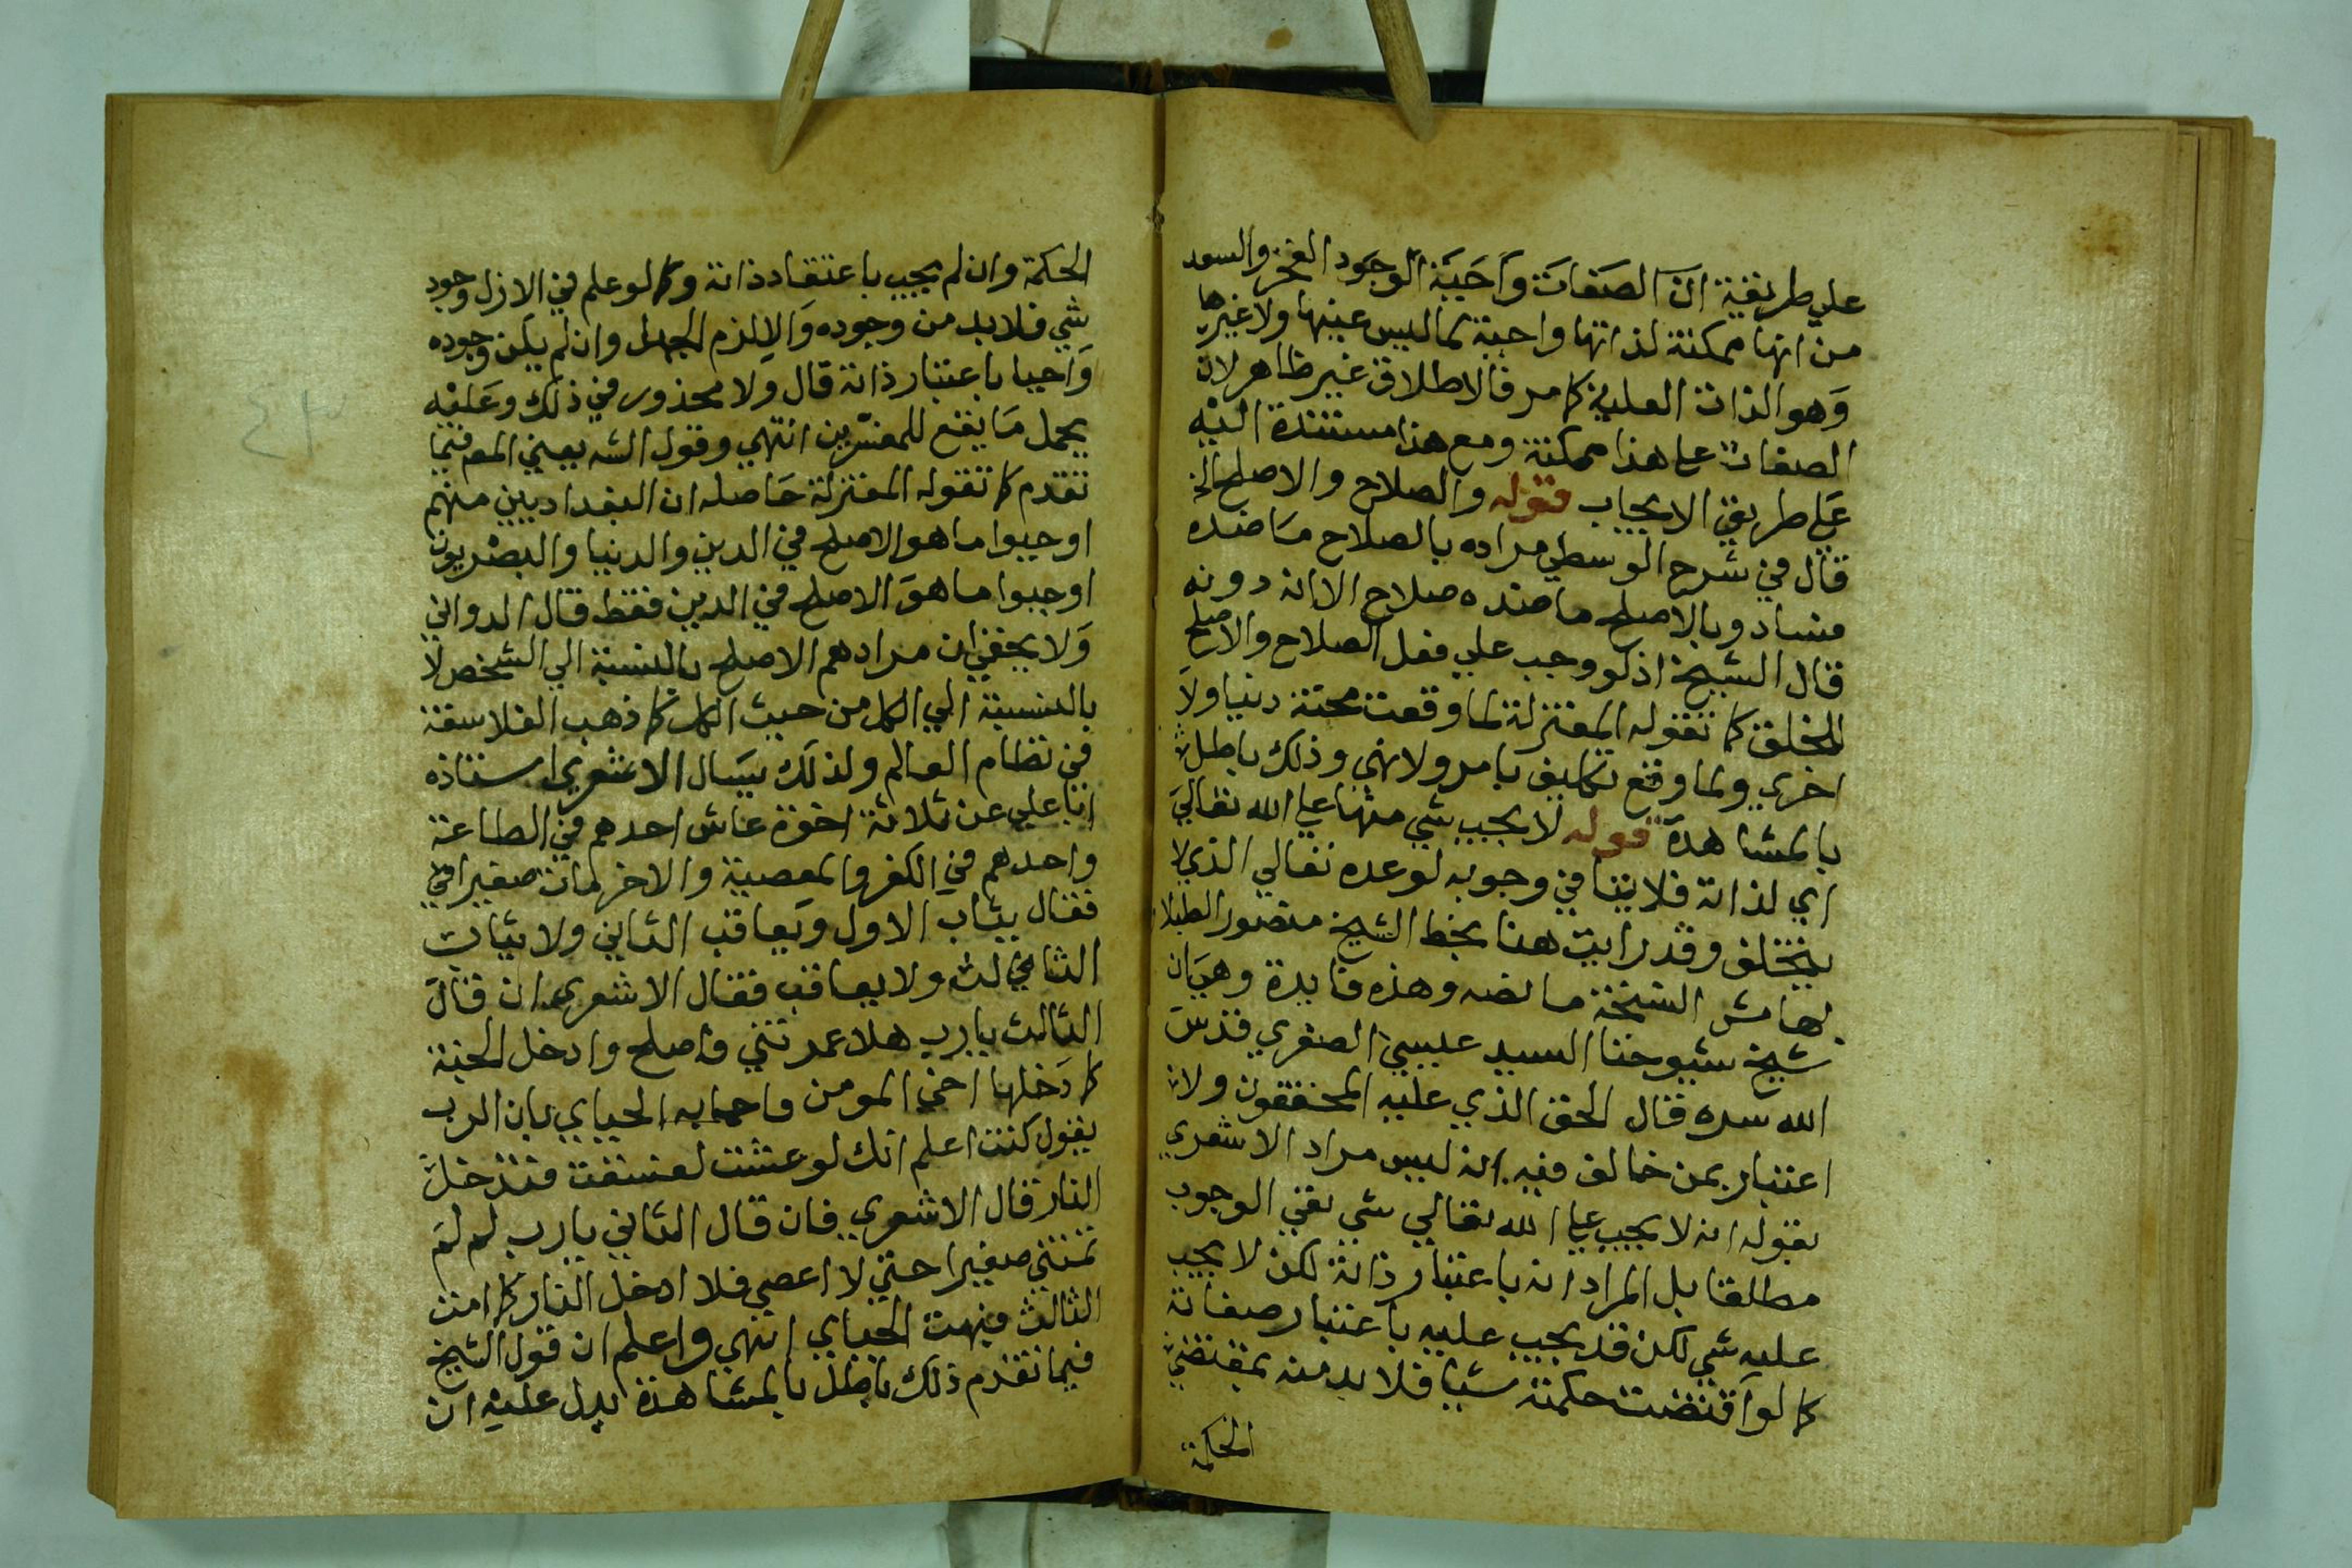 علي طريقة ان الصفات واجبة الوجود الفخر والسعد
من انها ممكنة لذاتها واجبة لما ليس عينها ولا غيرها
وهو الذات العلية كما مر فالاطلاق غير ظاهر لان
الصفات على هذا ممكنة ومع هذا مستندة اليه
على طريق الايجاب قوله والصلاح والاصلح الخ
قال في شرح الوسطي مراده بالصلاح ما ضده
فساد وبالاصلح ما ضده صلاح الا انه دونه
قال الشيخ اذ لو وجب علي فعل الصلاح والاصلح
للخلق كما تقوله المعتزلة لما وقعت محنة دنيا ولا
اخري ولما وقع تكليف بامر ولا نهي وذلك باطل
بالمشاهدة قوله لا يجب شي منها على الله تعالي
اي لذاته فلا ينافي وجوبه لوعده تعالي الذي لا
يتخلف وقد رايت هنا بخط الشيخ منصور الطبلا
بهامش النسخة ما نصه وهذه فايدة وهي ان
شيخ شيوخنا السيد عيسي الصفوي قدس
الله سره قال الحق الذي عليه المحققون ولا
اعتبار بمن خالف فيه انه ليس مراد الاشعري
بقوله انه لا يجب على الله تعالي شي نفي الوجوب
مطلقا بل المراد انه باعتبار ذاته لكن لا يجب
عليه شي لكن قد يجب عليه باعتبار صفاته
كما لو اقتضت حكمته شيا فلا بد منه بمقتضي
الحكمة
الحكمة وان لم يجب باعتقاد ذاته وكما لو علم في الازل وجود
شي فلا بد من وجوده والا لزم الجهل وان لم يكن وجوده
واجبا باعتبار ذاته قال ولا محذور في ذلك وعليه
يحمل ما يقع للمفسرين انتهي وقول الشه يعني المص فيما
تقدم كما تقوله المعتزلة حاصله ان البغداديين منهم
اوجبوا ما هو الاصلح في الدين والدنيا والبصريون
اوجبوا ما هو الاصلح في الدين فقط قال الدواني
ولا يخفي ان مرادهم الاصلح بالنسبة الي الشخص لا
بالنسبة الي الكل من حيث الكل كما ذهب الفلاسفة
في نظام العالم ولذلك يسال الاشعري استاذه
ابا علي عن ثلاثة اخوة عاش احدهم في الطاعة
واحدهم في الكفر والمعصية والاخر مات صغيرا
فقال يثاب الاول ويعاقب الثاني ولا يثاب
الثالث ولا يعاقب فقال الاشعري ان قال
الثالث يا رب هلا عمرتني فاصلح وادخل الجنة
كما دخلها اخي المومن فاجابه الجباي بان الرب
يقول كنت اعلم انك لو عشت لفسقت فتدخل
النار قال الاشعري فان قال الثاني يا رب لم لم
تمتني صغيرا حتي لا اعصي فلا ادخل النار كما امت
الثالث فبهت الجباي انتهي واعلم ان قول الشيخ
فيما تقدم ذلك باطل بالمشاهدة يدل عليه ان